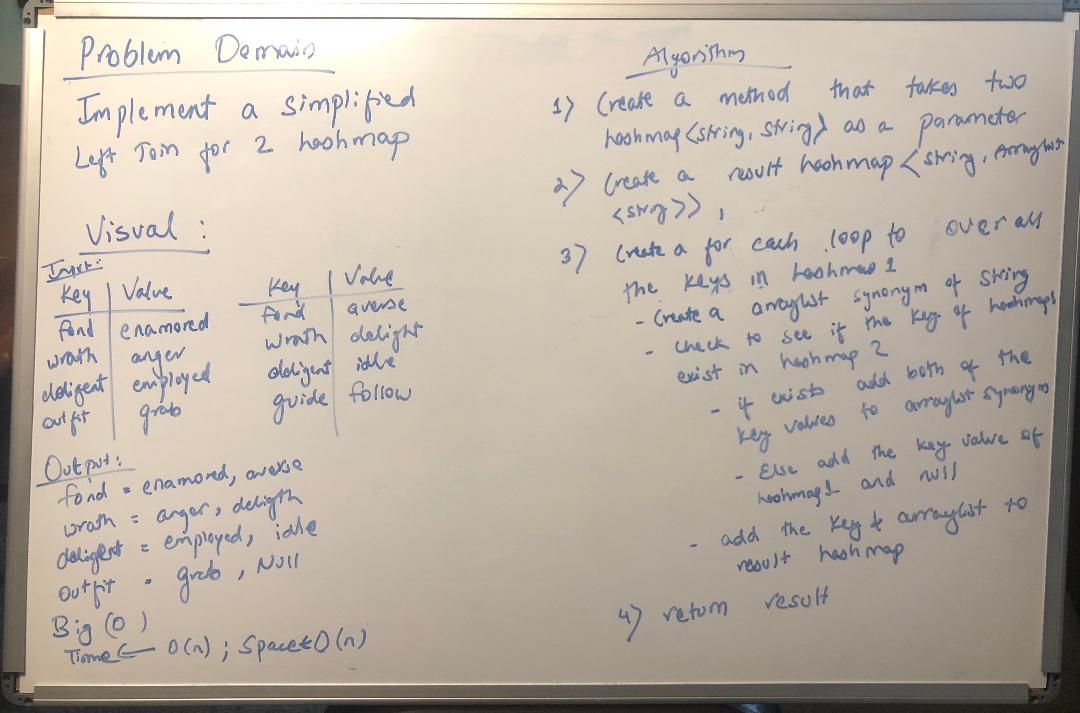 Problem Domain
Implement a simplified
Left Join for 2 hashmap
Visual :
Input:
Key Value
fond enamored
wrath anger
deligent employed
outfit grab
Key Value
fond averse
wrath delight
deligent idle
guide follow
Output:
fond = enamored, averse
wrath = anger, deligth
deligent = employed, idle
outfit = grab, Null
Big (O)
Time ← O(n) ; Space ← O(n)
Algorithm
1) Create a method that takes two
hashmap <string, string> as a parameter
2) Create a result hashmap < string, Arraylist
<string>> ,
3) Create a for each loop to over all
the keys in hashmap 1
- Create a arraylist synonym of string
- check to see if the key of hashmap1
exist in hashmap 2
- if exists add both of the
key values to arraylist synonym
- Else add the key value of
hashmap1 and null
- add the key & arraylist to
result hashmap
4) return result